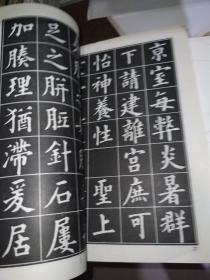 足之胼胝針石屢
加腠理猶滯爰居
京室每弊炎暑群
下請建離宮庶可
怡神養性聖上